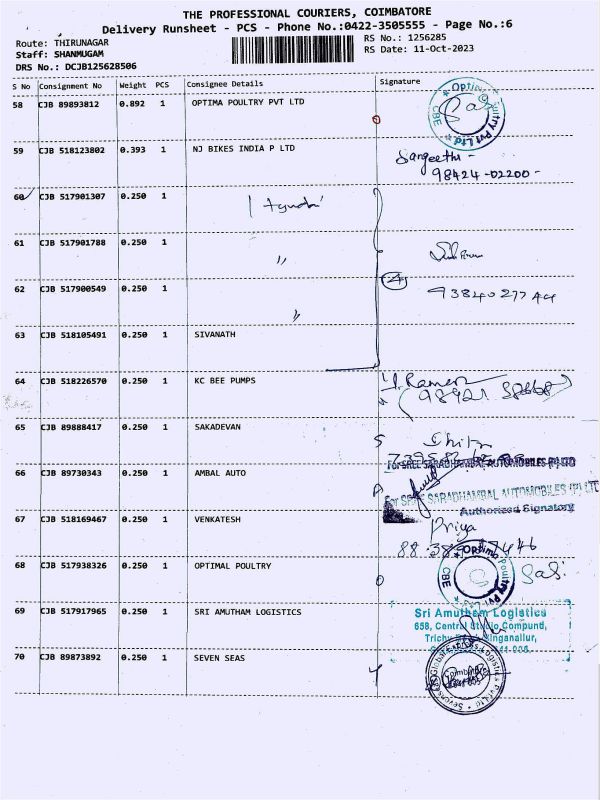 THE PROFESSIONAL COURIERS, COIMBATORE
Delivery Runsheet - PCS - Phone No.:0422-3505555 - Page No.:6
Route: THIRUNAGAR
Staff: SHANMUGAM
DRS No.: DCJB125628506
RS No.: 1256285
RS Date: 11-Oct-2023
S No Consignment No Weight PCS Consignee Details Signature
58 CJB 89893812 0.892 1 OPTIMA POULTRY PVT LTD
59 CJB 518123802 0.393 1 NJ BIKES INDIA P LTD
Sangeetha -
98424-02200 -
60 CJB 517901307 0.250 1
61 CJB 517901788 0.250 1 "
62 CJB 517900549 0.250 1 "
4
63 CJB 518105491 0.250 1 SIVANATH
64 CJB 518226570 0.250 1 KC BEE PUMPS
65 CJB 89888417 0.250 1 SAKADEVAN
66 CJB 89730343 0.250 1 AMBAL AUTO
For SREE SARADHAMBAL AUTOMOBILES (P) LTD
For SREE SARADHAMBAL AUTOMOBILES (P) LTD
Authorized Signatory
67 CJB 518169467 0.250 1 VENKATESH
Priya
68 CJB 517938326 0.250 1 OPTIMAL POULTRY
Sasi
69 CJB 517917965 0.250 1 SRI AMUTHAM LOGISTICS
Sri Amutham Logistics
658, Central Studio Compund,
70 CJB 89873892 0.250 1 SEVEN SEAS